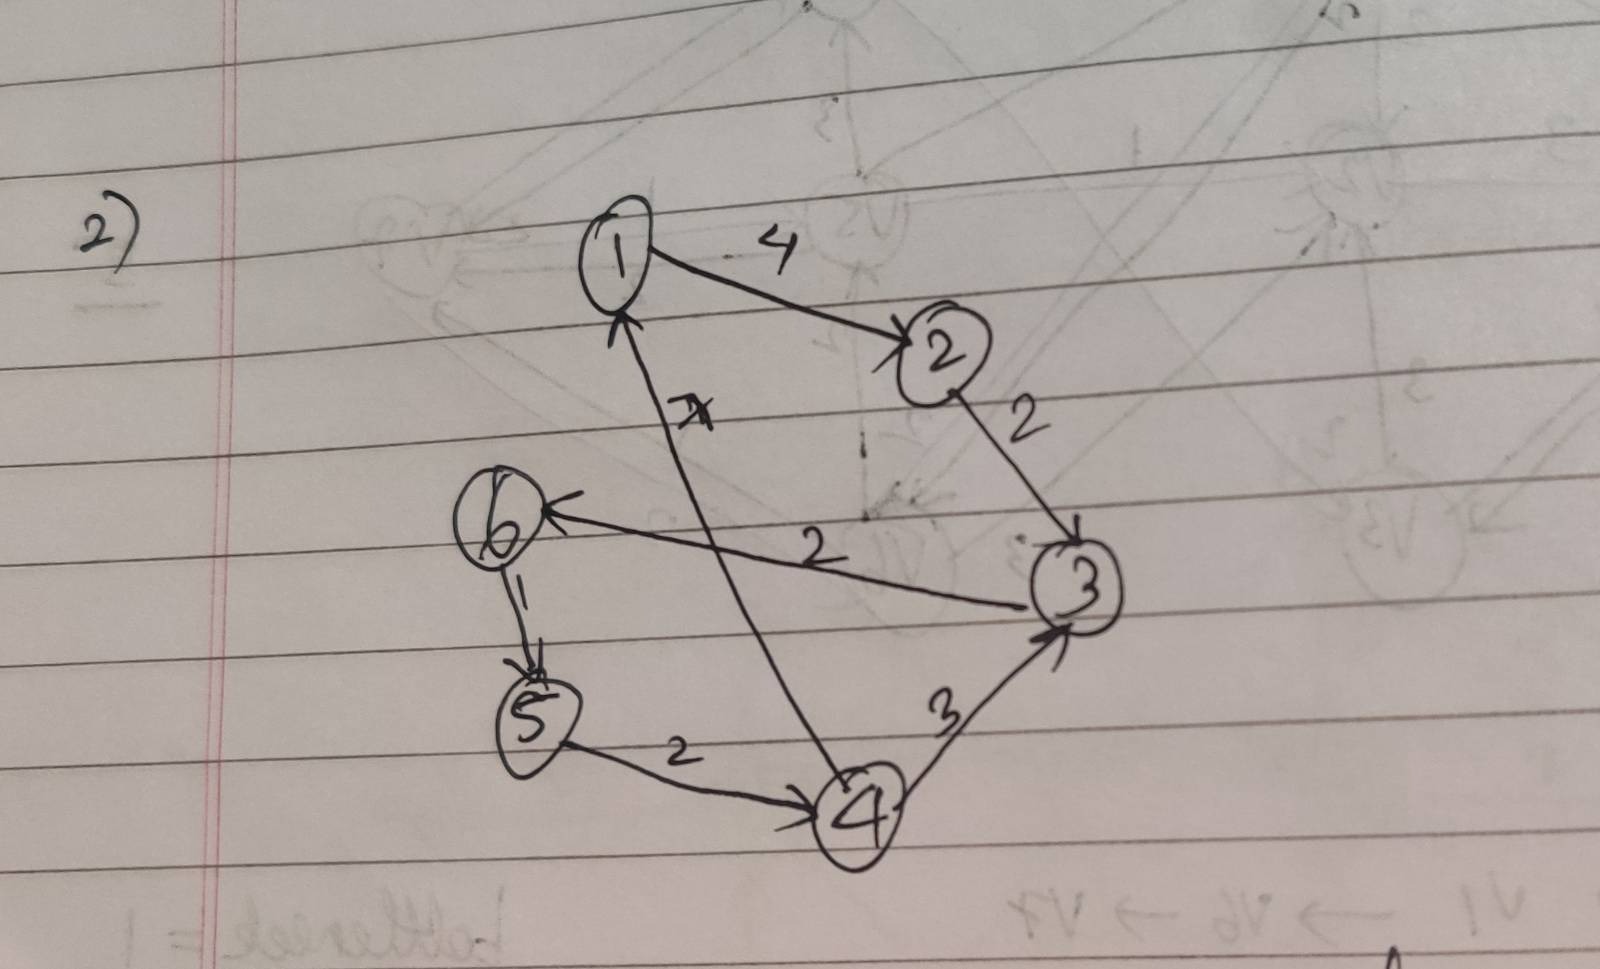 2)
1
4
2
2
6
2
3
1
5
3
2
4